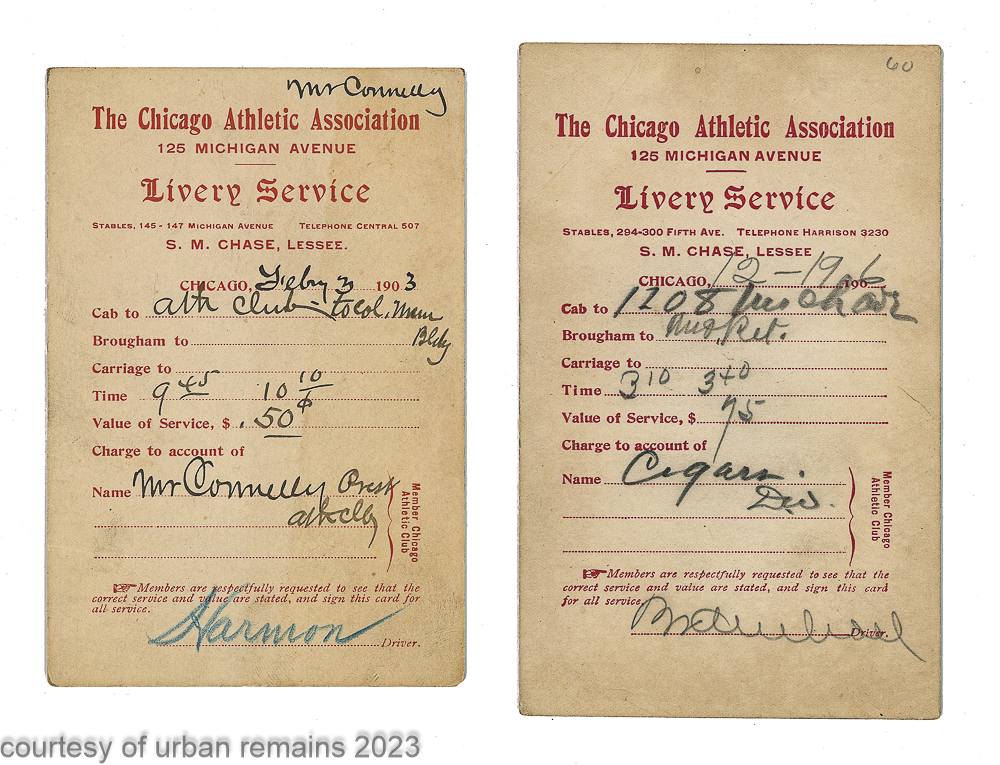 Mr Connelly
The Chicago Athletic Association
125 MICHIGAN AVENUE
Livery Service
STABLES, 145 - 147 MICHIGAN AVENUE TELEPHONE CENTRAL 507
S. M. CHASE, LESSEE.
CHICAGO, Feby 3 1903
Cab to ath club - to Col. Mem
Bldg
Brougham to
Carriage to
Time 9 45 10 10
Value of Service, $ .50 ¢
Charge to account of
Name Mr Connelly Prest
ath Club
Member Chicago
Athletic Club
☞ Members are respectfully requested to see that the
correct service and value are stated, and sign this card
for all service.
Harmon Driver.
60
The Chicago Athletic Association
125 MICHIGAN AVENUE
Livery Service
STABLES, 294-300 FIFTH AVE. TELEPHONE HARRISON 3230
S. M. CHASE, LESSEE
CHICAGO, 12-19-6 190
Cab to 1208 Mich ave
Brougham to Ret.
Carriage to
Time 3 10 3 40
Value of Service, $ 75
Charge to account of
Name Cigars
Div.
Member Chicago
Athletic Club
☞ Members are respectfully requested to see that the
correct service and value are stated, and sign this card
for all service.
Driver.
courtesy of urban remains 2023